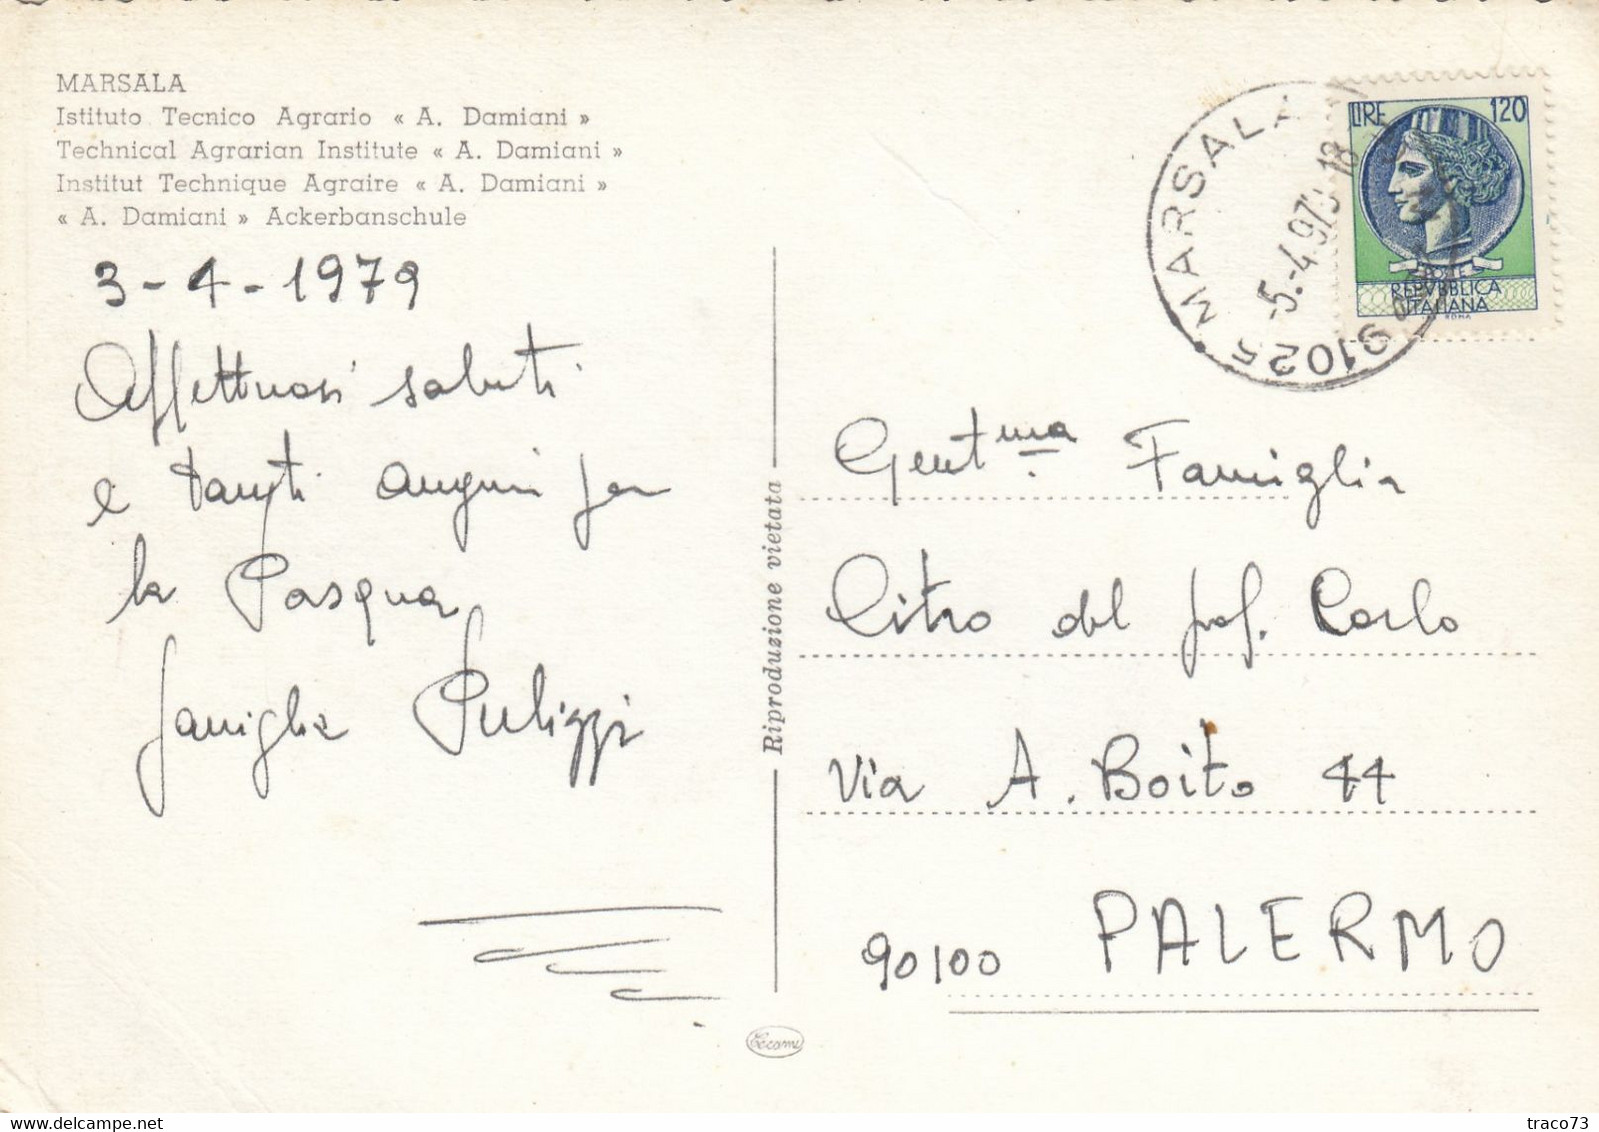 MARSALA
Istituto Tecnico Agrario « A. Damiani »
Technical Agrarian Institute « A. Damiani »
Institut Technique Agraire « A. Damiani »
« A. Damiani » Ackerbanschule
3-4-1979
Affettuosi saluti
e tanti auguri per
la Pasqua
famiglia Pulizzi
Riproduzione vietata
MARSALA
-5.-4.979-18
91025
LIRE 120
POSTE
REPVBBLICA
ITALIANA
ROMA
Gent.ma Famiglia
Citro del prof. Carlo
Via A. Boito 44
90100 PALERMO
traco73